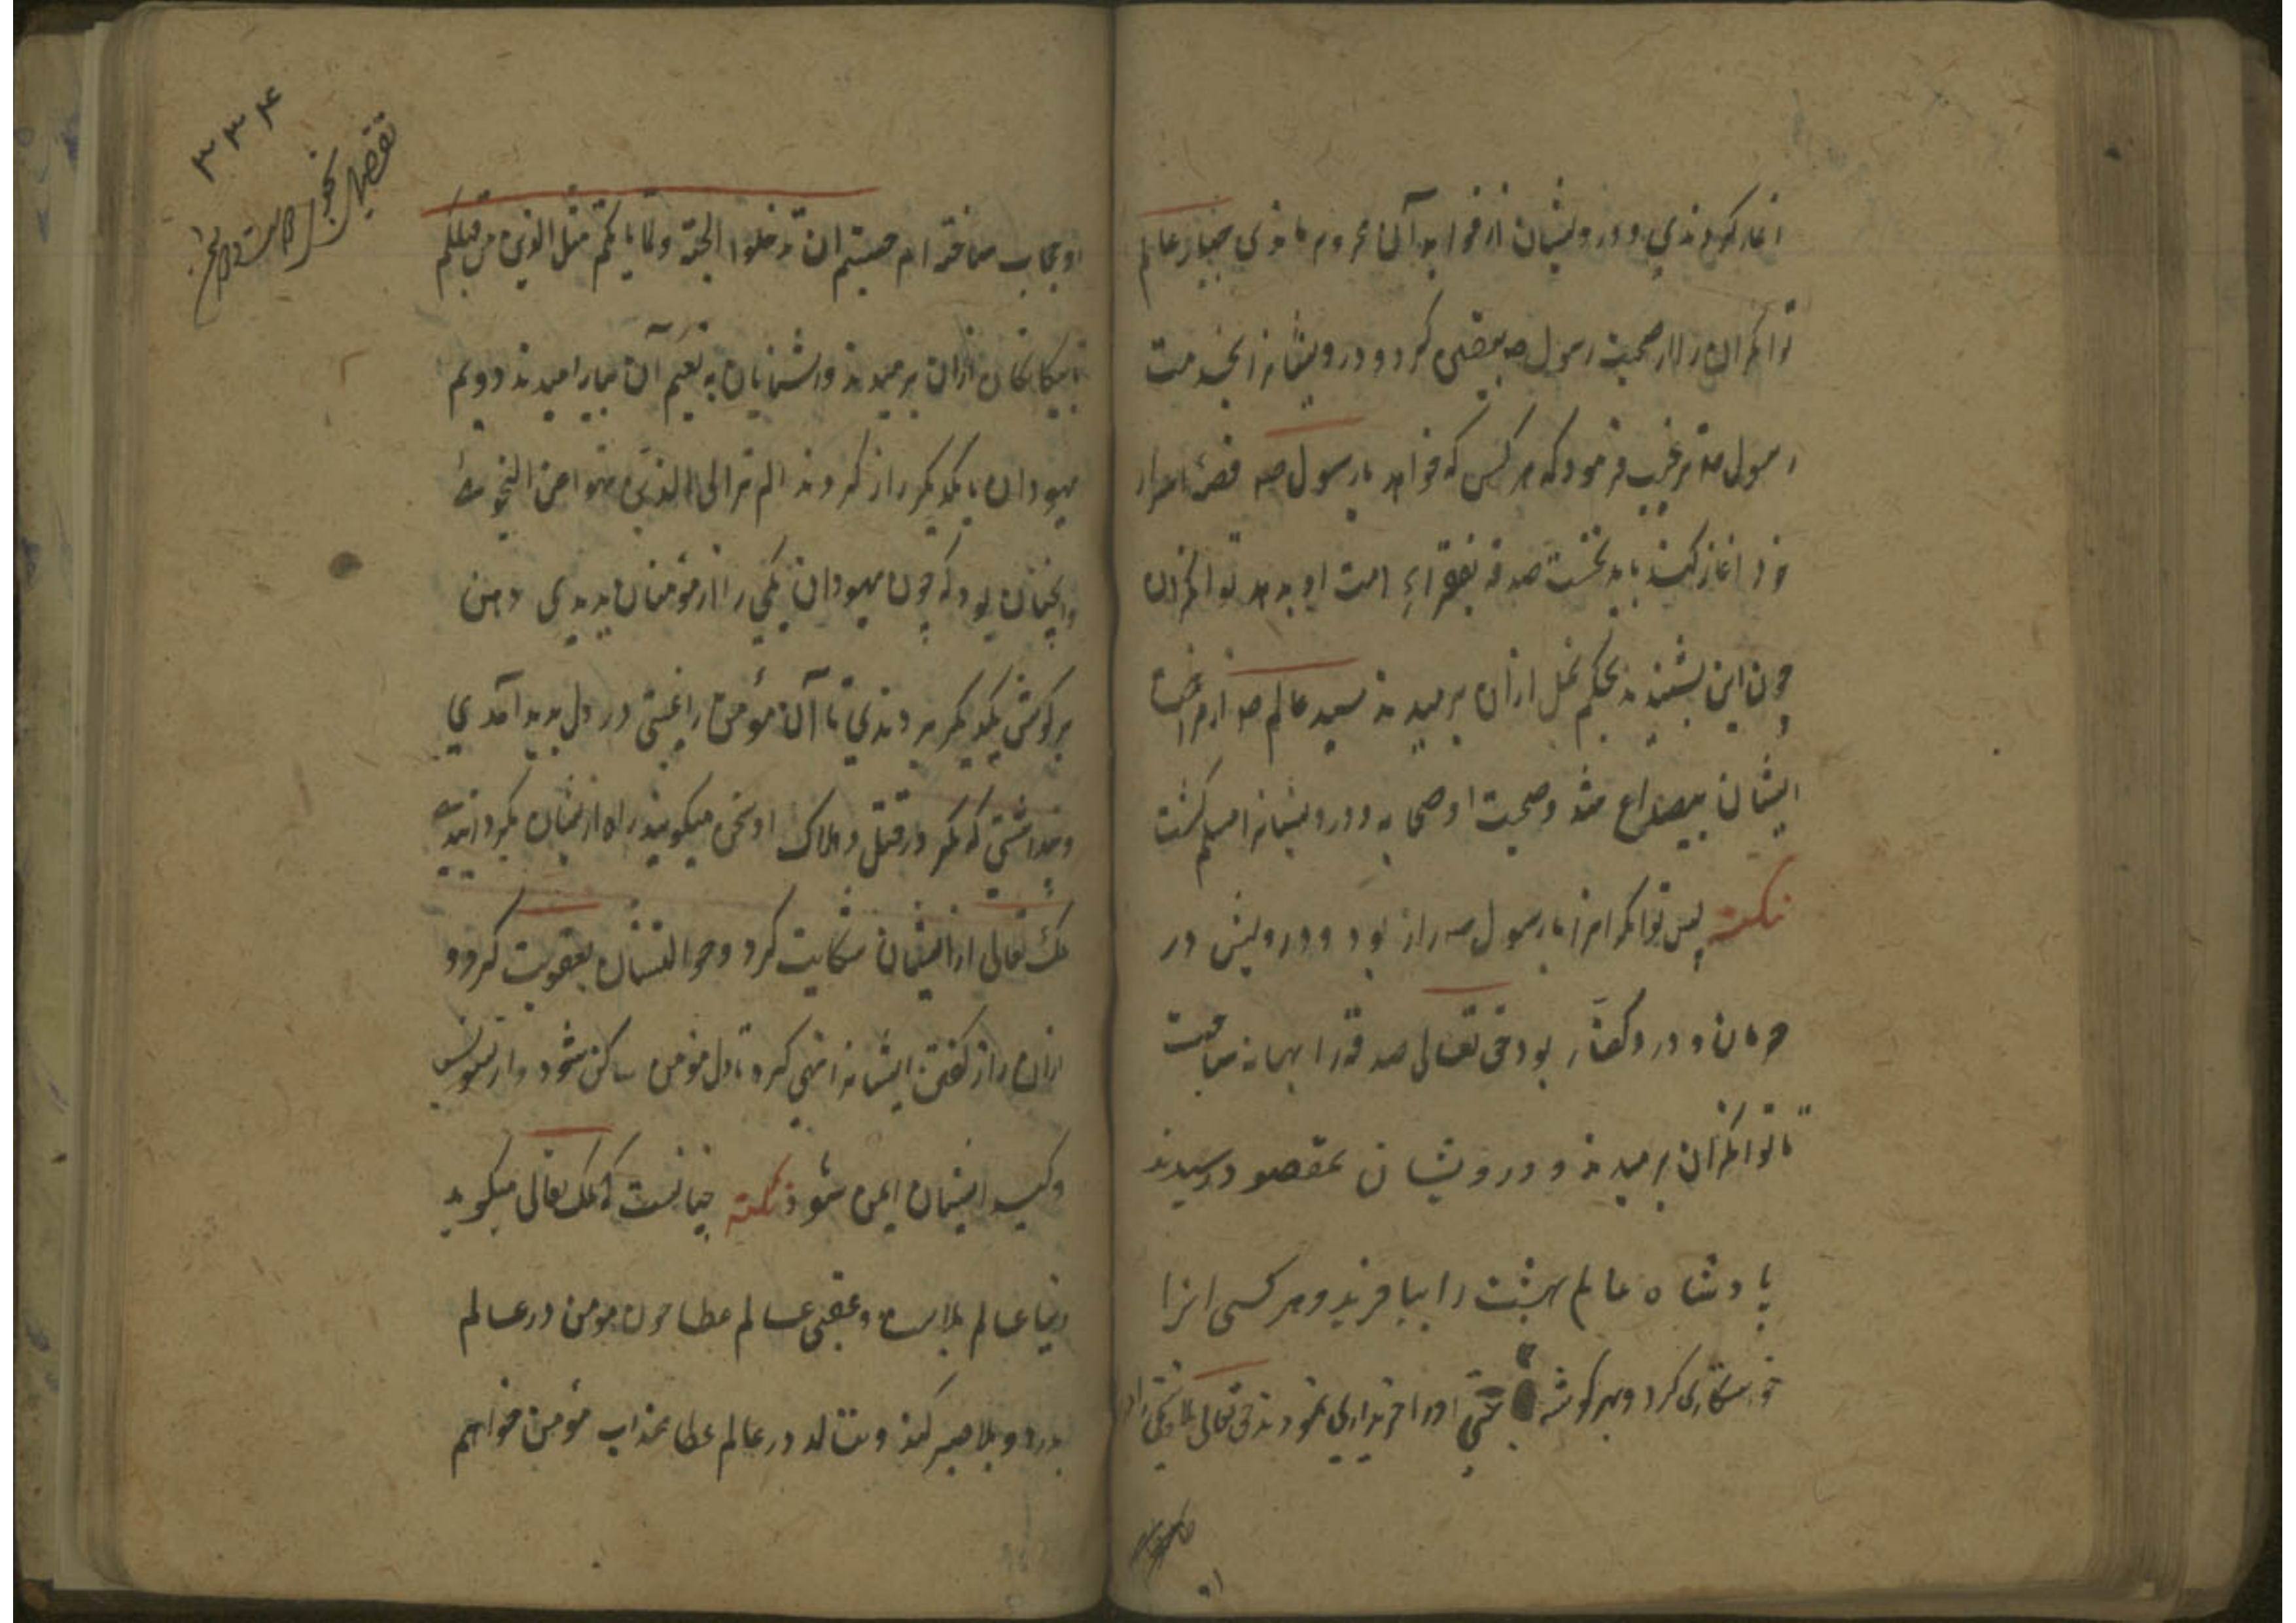 آغاز کردندی و درویشان از فواید آن محروم ماندی مهتر عالم
توانکران را از صحبت رسول صه کرد و درویشانرا بخدمت
رسول صه ترغیب فرمود که هر کس که خواهد با رسول صه اسرار
خود اغاز کند باید نخست صدقه بفقراء امت او بدهد توانکران
چون این بشنیدند بحکم بخل ازان برمیدند سید عالم صه از
ایشان شد و صحبت او صحابه و درویشانرا مسلم کشت
نکته پس توانکرانرا با رسول صه راز بود و درویش در
حرمان و در بود حق تعالی صدقه را بهانه ساخت
تا توانکران برمیدند و درویشان بمقصود رسیدند
پادشاه عالم بهشت را بیافرید و هر کسی انرا
کرد و بهر کوشه او را خریداری نمودند حق تعالی بلا
۳۳۴
او حجاب ساخته ام حسبتم ان تدخلوا الجنة ولما یاتکم مثل الذین من قبلکم
تا بیکانکان ازان برمیدند و اشنایان به نعیم آن بیارامیدند دویم
یهودان با یکدیکر راز کردند الم تر الی الذین نهوا عن النجوی
وانچنان بود که چون یهودان یکی را از مؤمنان بدیدی دهن
بر کوش یکدیکر بردندی تا آن مؤمن را در دل پدید آمدی
و پنداشتی که مکر در قتل و هلاک او سخن میکویند راه ازیشان بکردانیدی
ملک تعالی از ایشان شکایت کرد و حوالتشان بعقوبت کرد و
ازان راز کفتن ایشانرا نهی کرد تا دل مؤمن ساکن شود و از
و کید ایشان ایمن شود نکته چنانست که ملک تعالی میکوید
دنیا عالم بلاست و عقبی عالم عطا چون مومن در عالم
بدرد و بلا صبر کند و ننالد در عالم عطا بعذاب مؤمن نخواهم